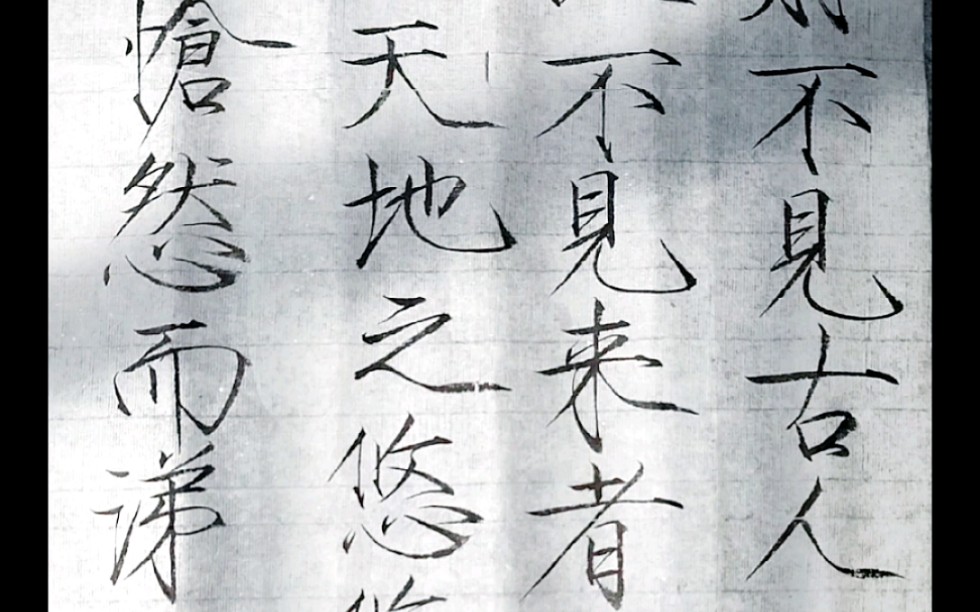 前不見古人
不見来者
天地之悠悠
愴然而涕